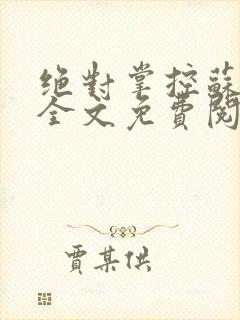 绝對掌控蘇
全文免費閱
賈某供